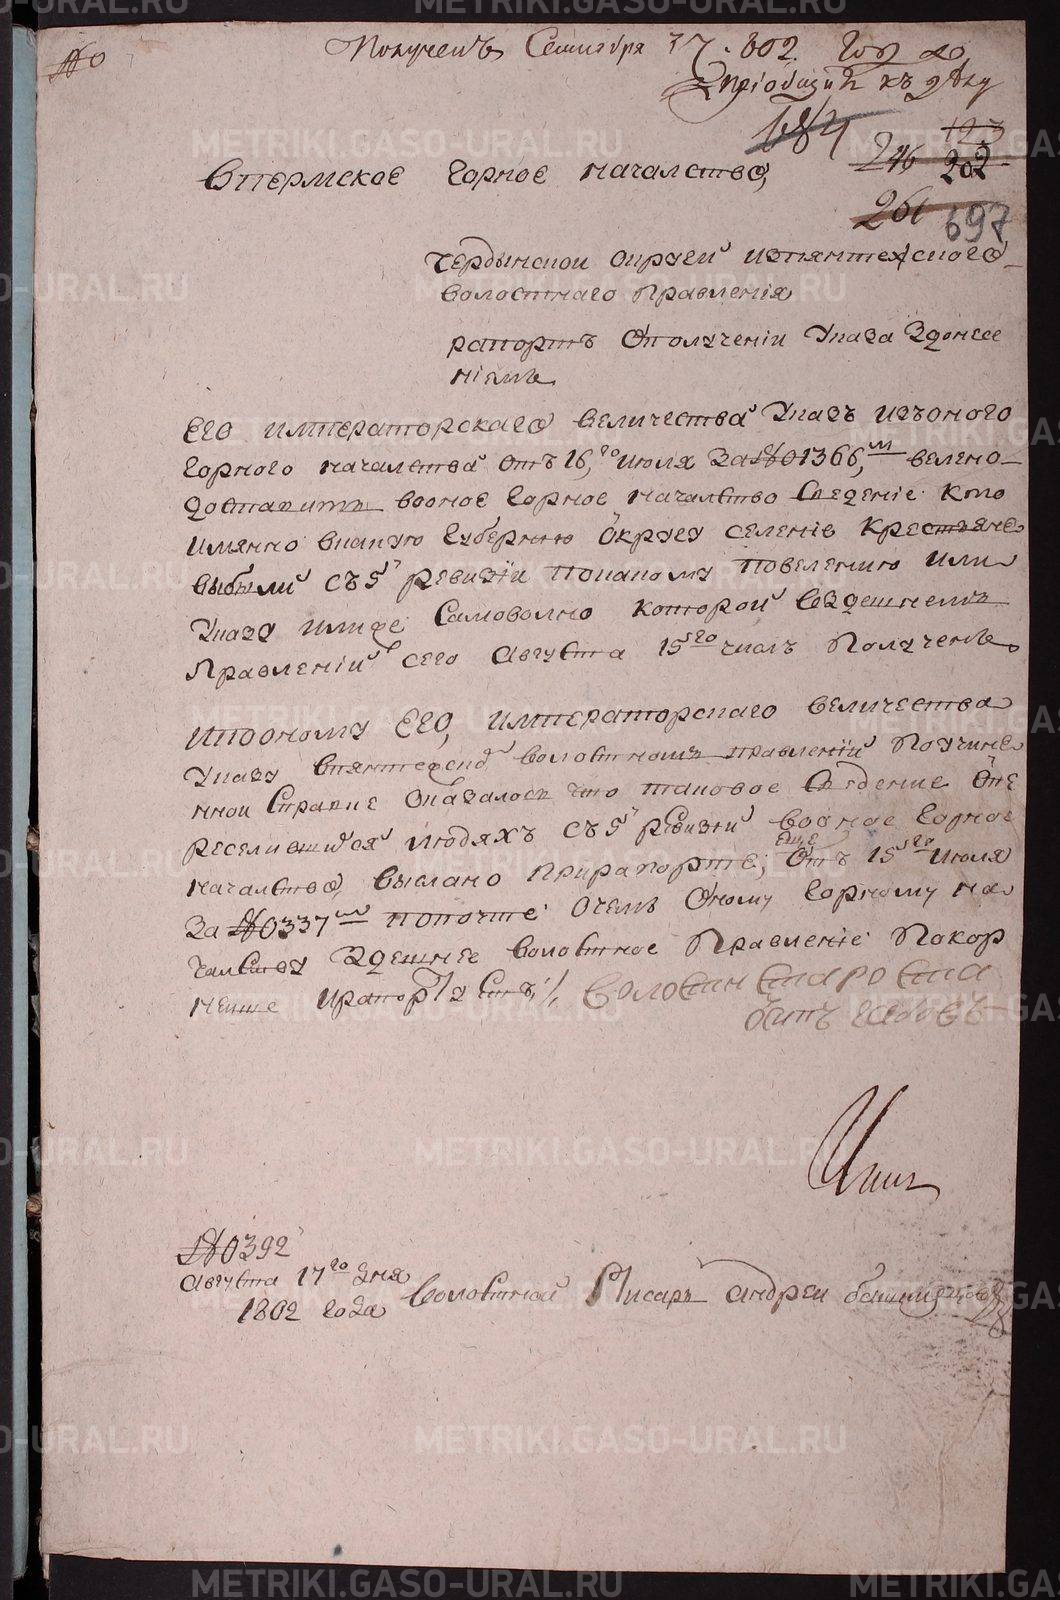 №
Полученъ Сентября 37. 802. году
Приобщить къ делу
684
123
246 202
261 697
Впермское Горное началство,
чердынской округи изпянтежского
волостнаго Правления
рапортъ Ополучении Указа Здонесе
ниемъ
Его императорскаго величества Указъ изъоного
Горного началства отъ 16,го июля За№ 1366,мъ велено
доставить вооное Горное началство Сведение кто
имянно вкакую губернию Округу селение крестьяне
выбыли съ5й ревизии покакому повелению или
Указу илиже Самоволно которой вздешнемъ
Правлении сего августа 15го числъ Полученъ
Ипооному Его, императорскаго величества
Указу впянтежскомъ волостномъ правлении Поучине
нной Справке Оказалось что таковое Сведение Опе
реселившийся людяхъ съ5й ревизии воонное Горное
началство, выслано Прирапорте, еще Отъ 15го Июля
За №337мъ попочте очемъ Оному Горному на
чалству Здешнее волостное Правление Покор
неше ирапортуетъ ./. Волостнй староста
Осипъ
№392
августа 17го дня
1802 года
волостной Писарь андреи